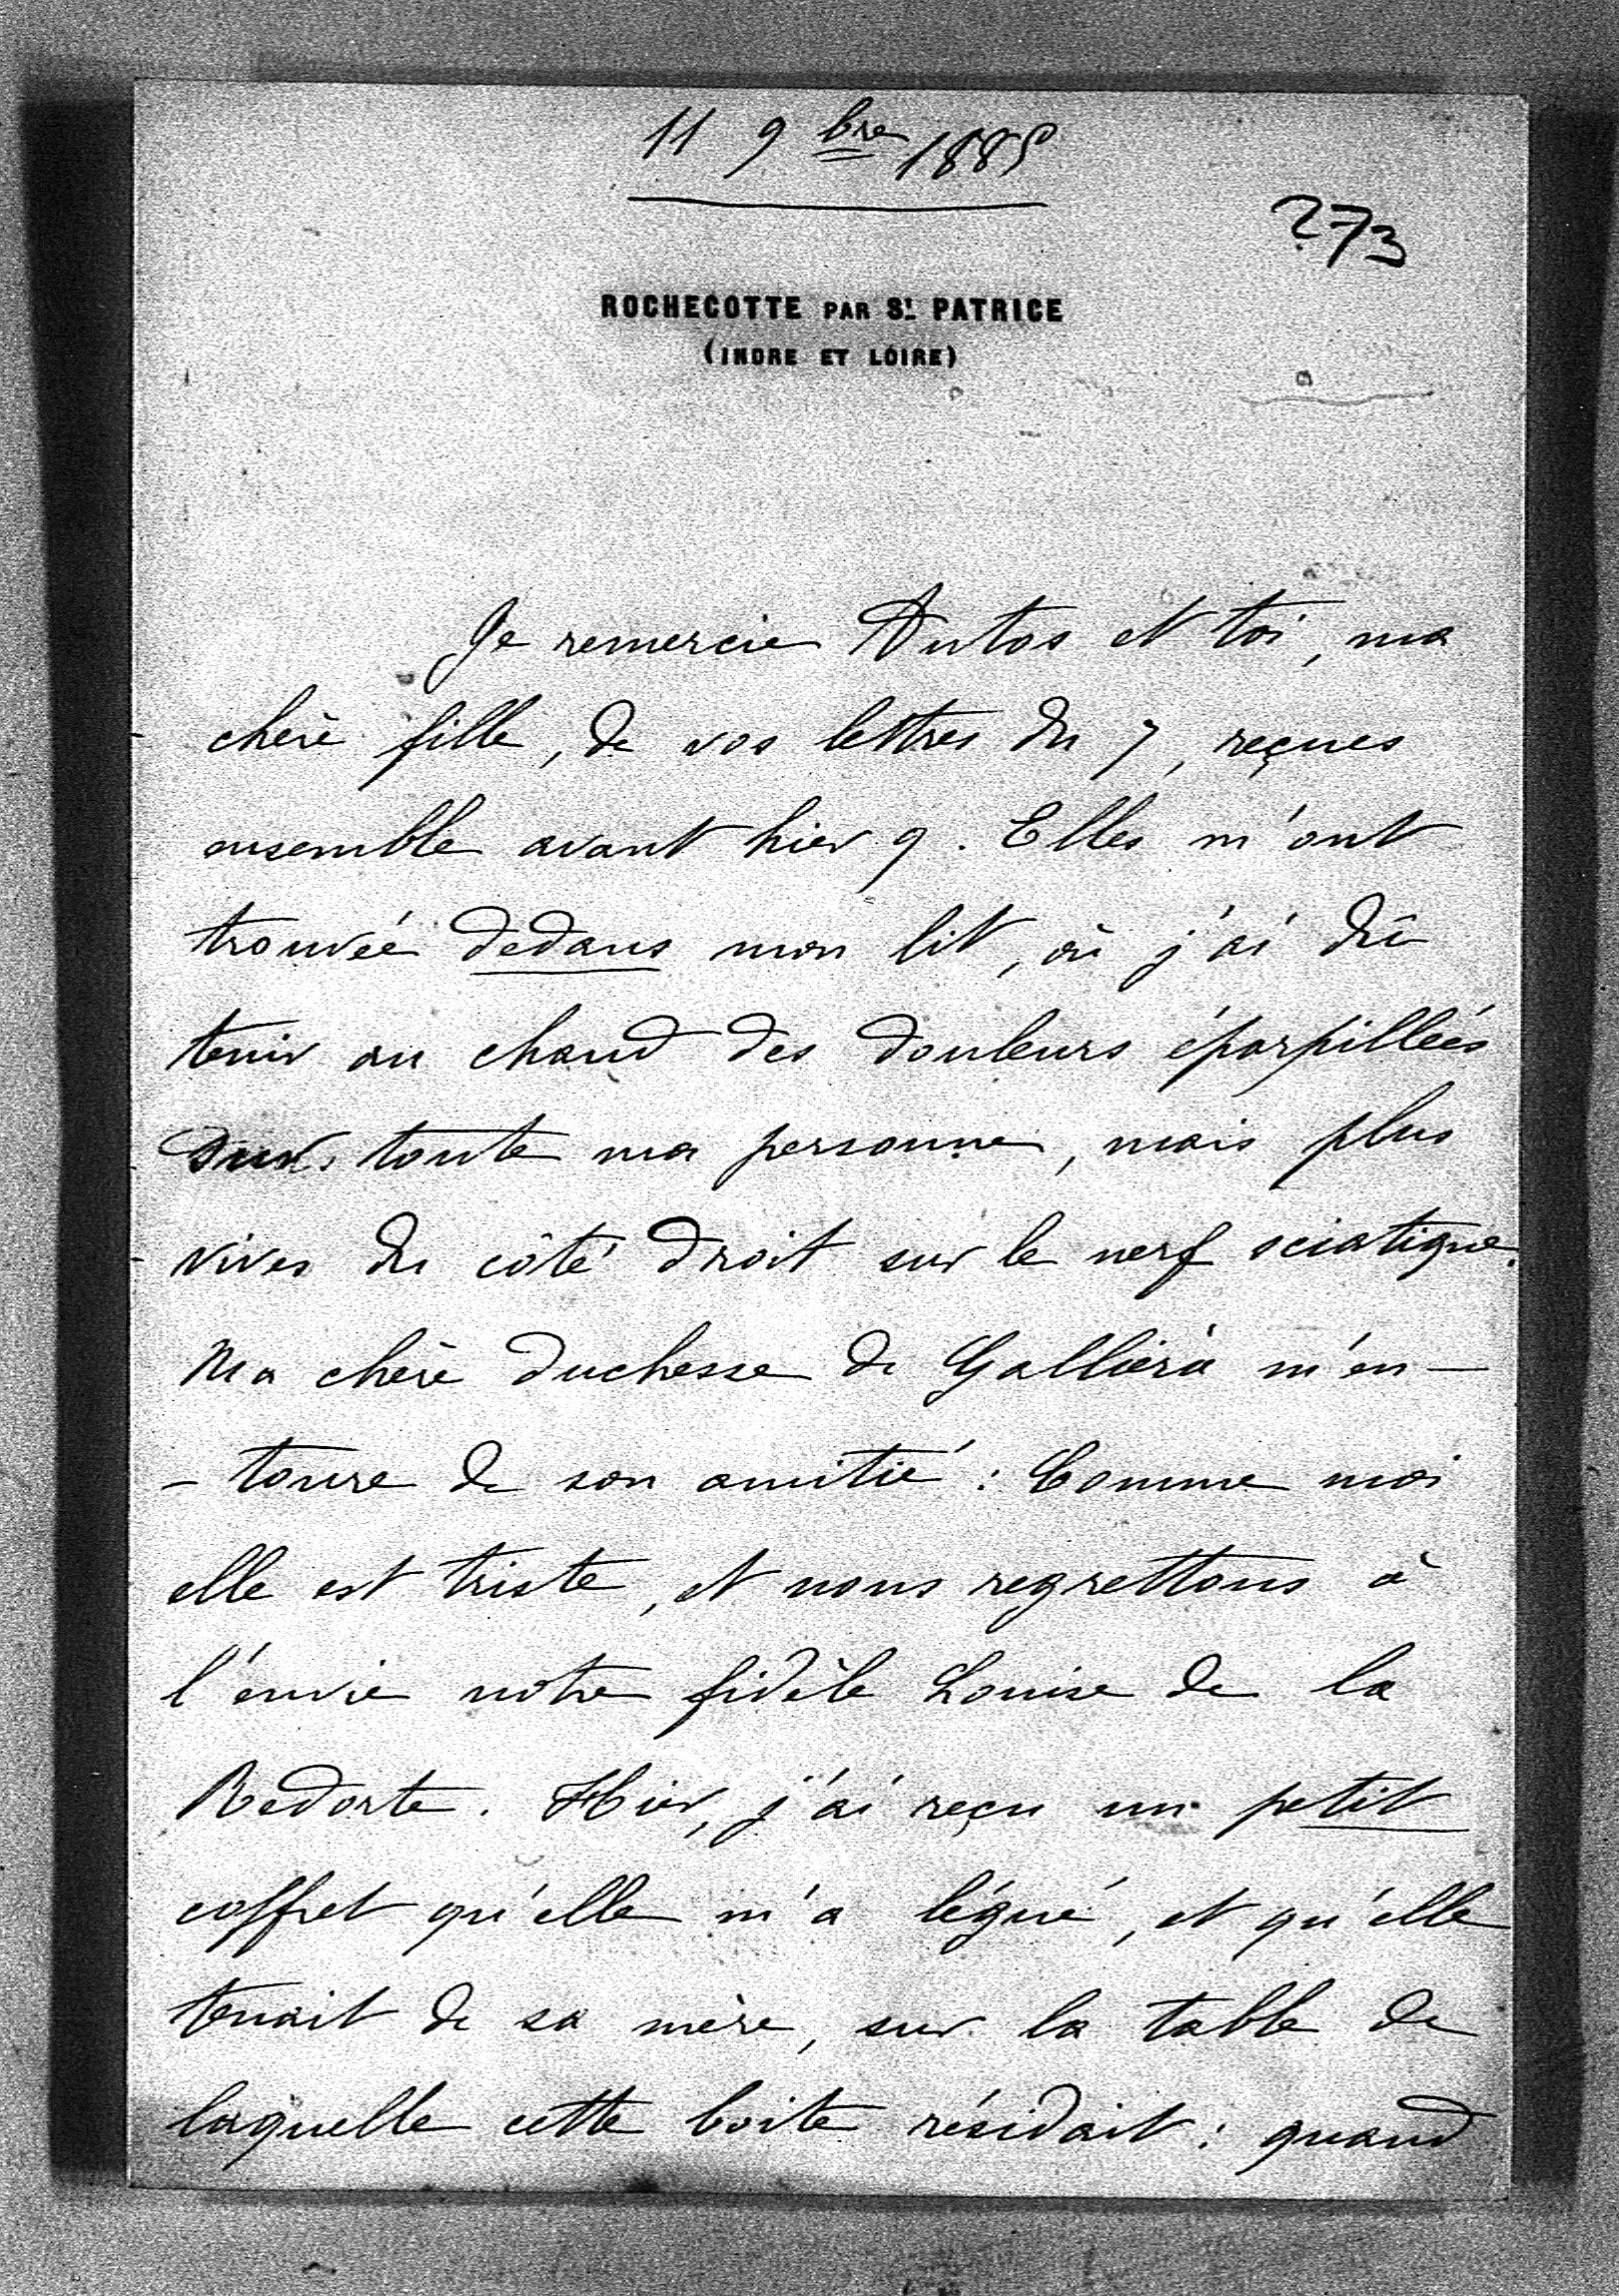 11 9bre 1885
273
ROCHECOTTE PAR St. PATRICE
(INDRE ET LOIRE)
Je remercie Antos et toi, ma
chère fille, de vos lettres du 7, reçues
ensemble avant hier 9. Elles m'ont
trouvée dedans mon lit, où j'ai dû
tenir au chaud des douleurs éparpillées
sur toute ma personne, mais plus
vives du côté droit sur le nerf sciatique.
Ma chère Duchesse de Galliera m'en-
-toure de son amitié : Comme moi
elle est triste, et nous regrettons à
l'envie notre fidèle Louise de la
Redorte. Hier, j'ai reçu un petit
coffret qu'elle m'a légué, et qu'elle
tenait de sa mère, sur la table de
laquelle cette boite résidait : quand